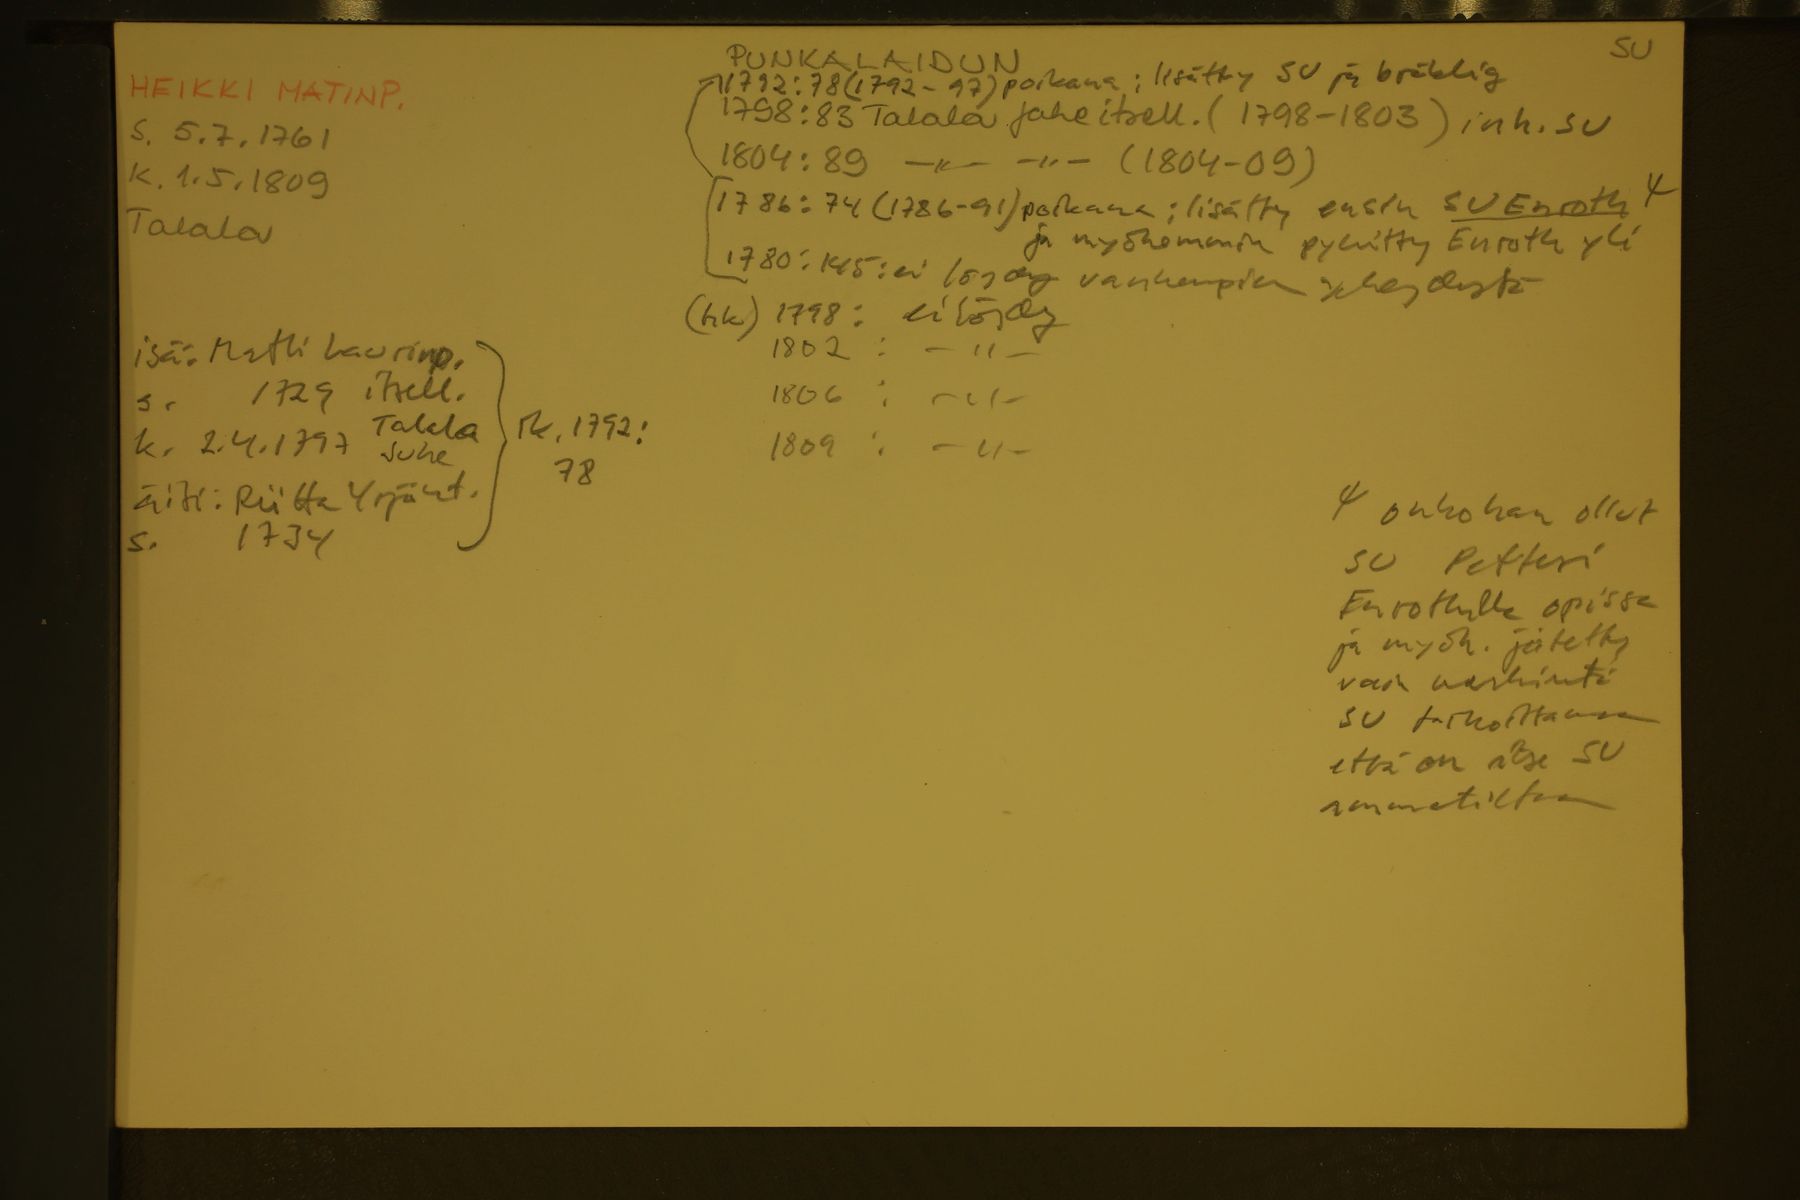 SU
HEIKKI MATINP.
s. 5.7.1761
k. 1.5.1809
Talala
isä: Matti Laurinp.
s. 1729 itsell.
k. 2.4.1797 Talala
äiti: Riitta Yrjänt.
s. 1734
rk. 1792:
78
PUNKALAIDUN
1792:78 (1792-97) poikana; lisätty SU ja bräklig
1798:83 Talala Juhe itsell. (1798-1803) inh. SU
1804:89 -"- -"- (1804-09)
1786:74 (1786-91) poikana; lisätty ensin SU Enroth Ψ
ja myöhemmin pyhitty Enroth yli
1780:145: ei löydy vanhempien yhteydestä
(hk) 1798: ei löydy
1802: -"-
1806: -"-
1809: -"-
Ψ onkohan ollut
SU Petteri
Enrothilla opissa
ja myöh. jätetty
vain merkintä
SU tarkoittamaan
että on itse SU
ammatiltaan